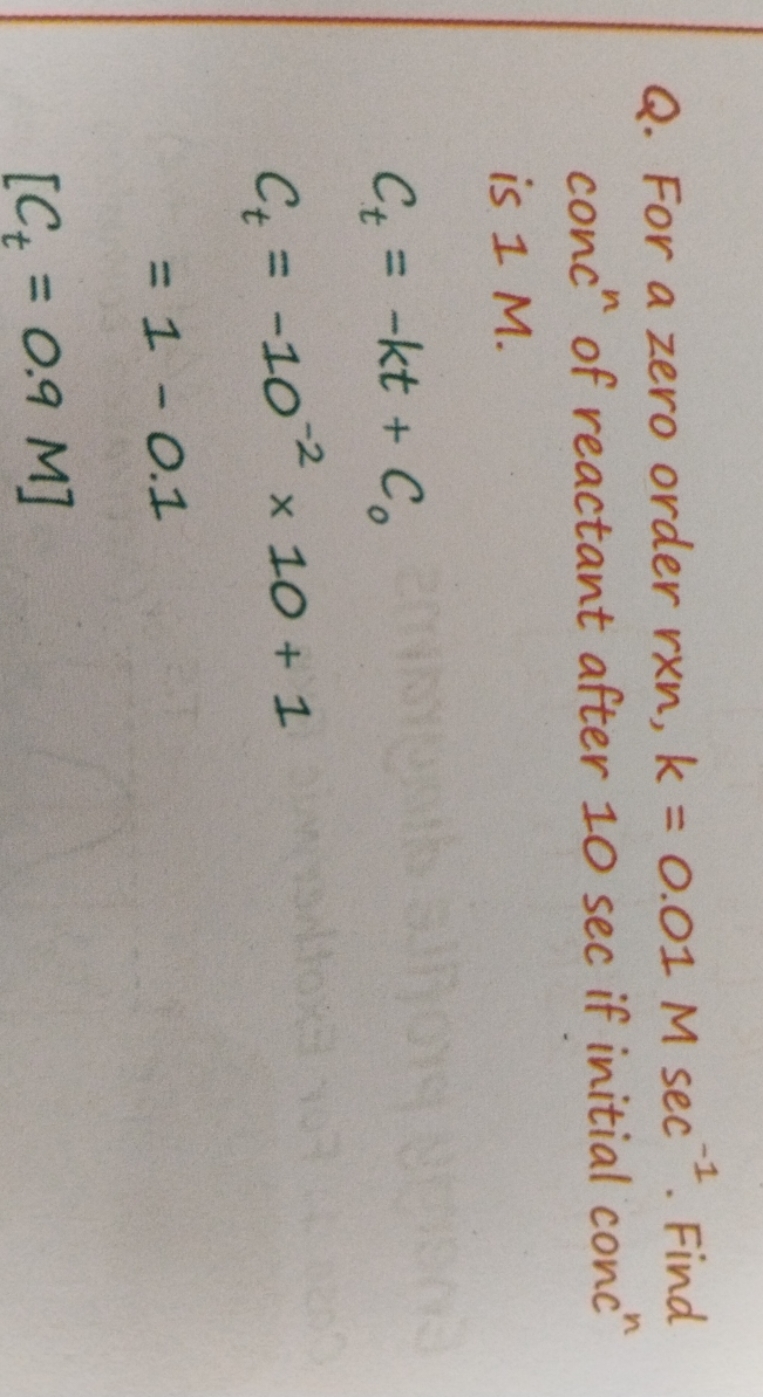 Q. For a zero order rxn, k = 0.01 M sec⁻¹. Find
concⁿ of reactant after 10 sec if initial concⁿ
is 1 M.
Cₜ = -kt + C₀
Cₜ = -10⁻² × 10 + 1
= 1 - 0.1
[Cₜ = 0.9 M]